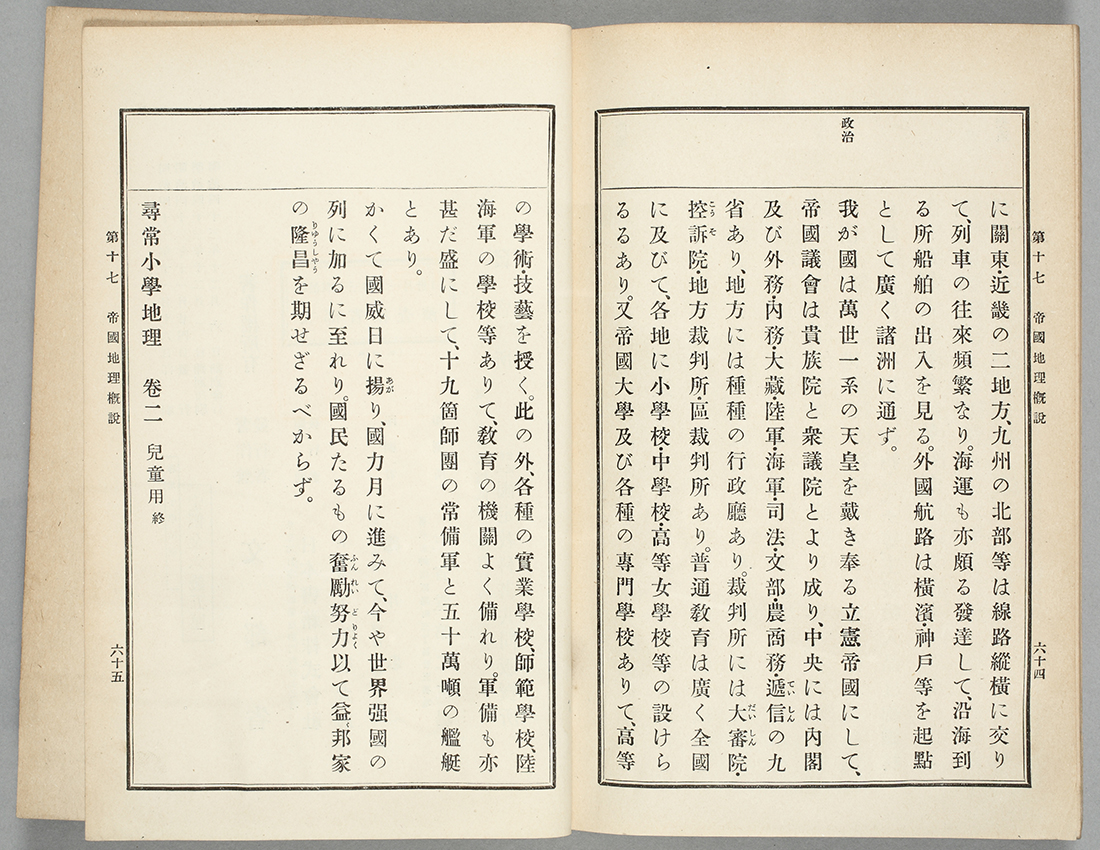 第十七　帝國地理概說　六十四
政治
に關東・近畿の二地方、九州の北部等は線路縱橫に交り
て、列車の往來頻繁なり。海運も亦頗る發達して、沿海到
る所船舶の出入を見る。外國航路は橫濱・神戶等を起點
として廣く諸洲に通ず。
我が國は萬世一系の天皇を戴き奉る立憲帝國にして、
帝國議會は貴族院と衆議院とより成り、中央には內閣
及び外務・內務・大藏・陸軍・海軍・司法・文部・農商務・遞信の九
省あり、地方には種種の行政廳あり。裁判所には大審院・
控訴院・地方裁判所・區裁判所あり。普通敎育は廣く全國
に及びて、各地に小學校・中學校・高等女學校等の設けら
るるあり。又帝國大學及び各種の專門學校ありて、高等
の學術・技藝を授く。此の外、各種の實業學校、師範學校、陸
海軍の學校等ありて、敎育の機關よく備れり。軍備も亦
甚だ盛にして、十九箇師團の常備軍と五十萬噸の艦艇
とあり。
かくて國威日に揚り、國力月に進みて、今や世界强國の
列に加るに至れり。國民たるもの奮勵努力以て益〻邦家
の隆昌を期せざるべからず。
尋常小學地理　卷二　兒童用終
第十七　帝國地理概說　六十五